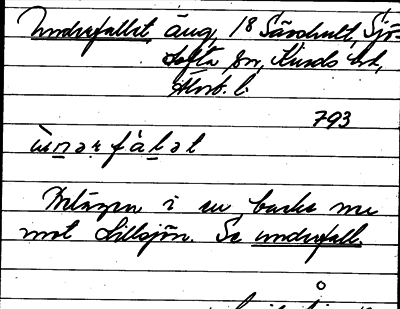 Underfallet, äng, 18 Särshult, Sjö-
tofta sn, Kinds hd,
Älvsb. l.
793
ùn̠ər fàl̠ət
i en backe ner
mot Lillsjön. Se underfall.